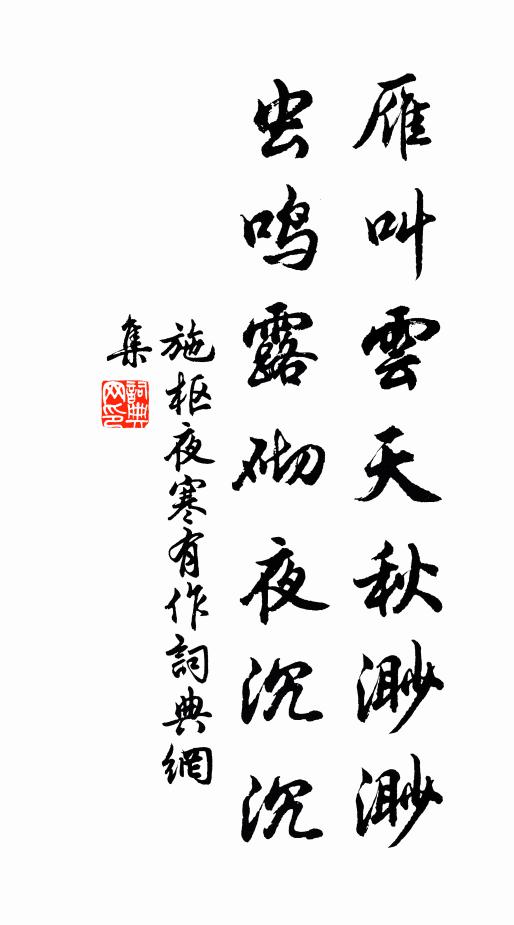 雁叫雲天秋渺渺
虫鸣露砌夜沉沉
施枢夜寒有作詞典網
集
詞典
网印